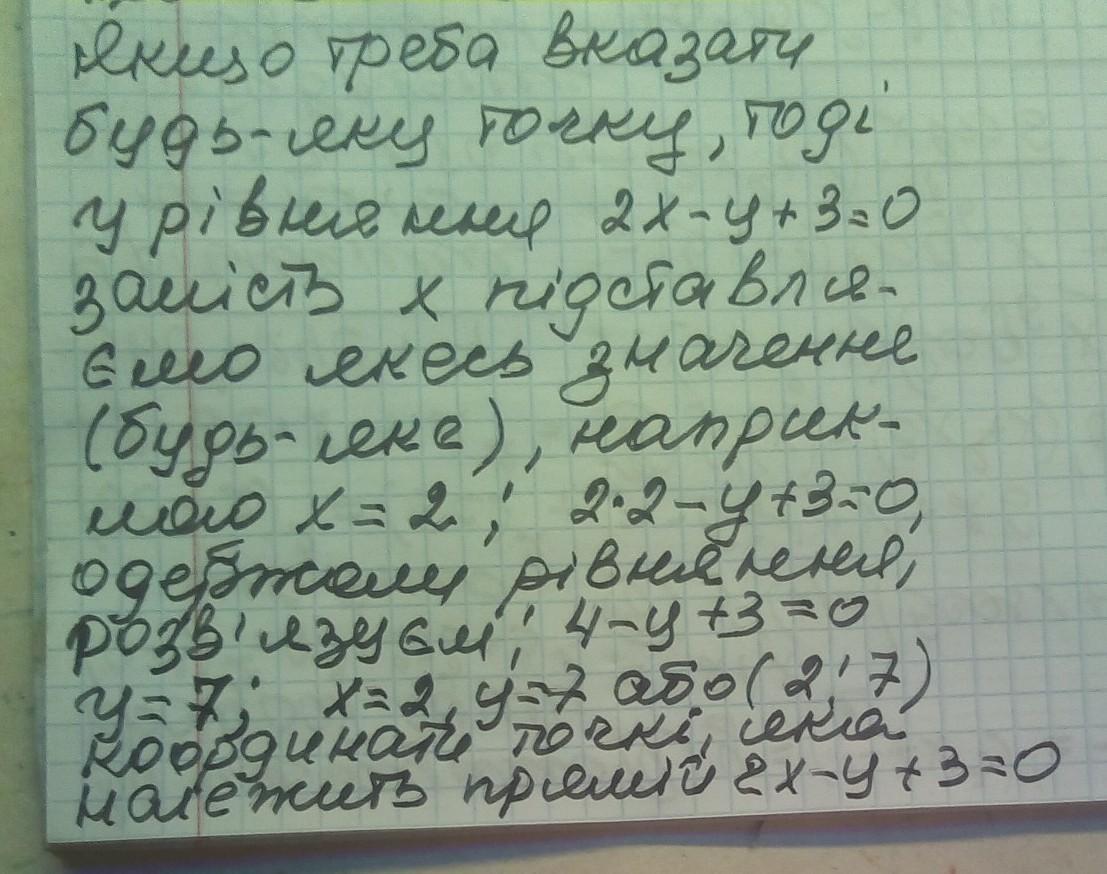 якщо треба вказати
будь-яку точку, тоді
у рівняння 2x-y+3=0
замість x підставля-
ємо якесь значення
(будь-яке), наприк-
лад x=2; 2·2-y+3=0,
одержали рівняння,
розв'язуєм; 4-y+3=0
y=7; x=2, y=7 або (2;7)
координати точкі, яка
належить прямій 2x-y+3=0